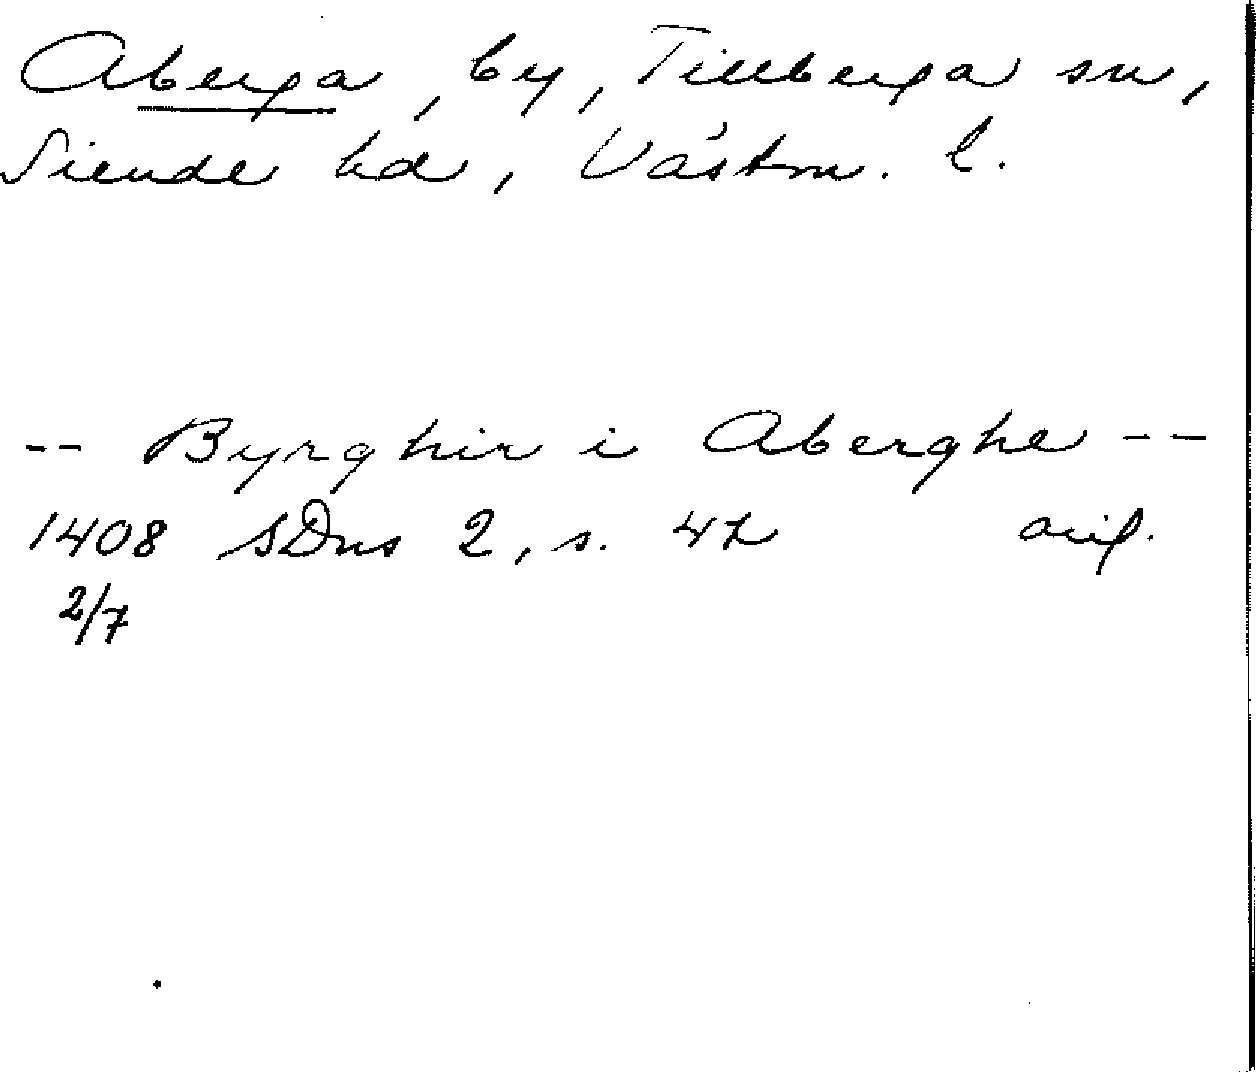 Aberga, by, Tillberga sn,
Siende hd, Västm. l.
-- Byrghir i Aberghe --
1408 SDns 2, s. 42 orig.
2/7